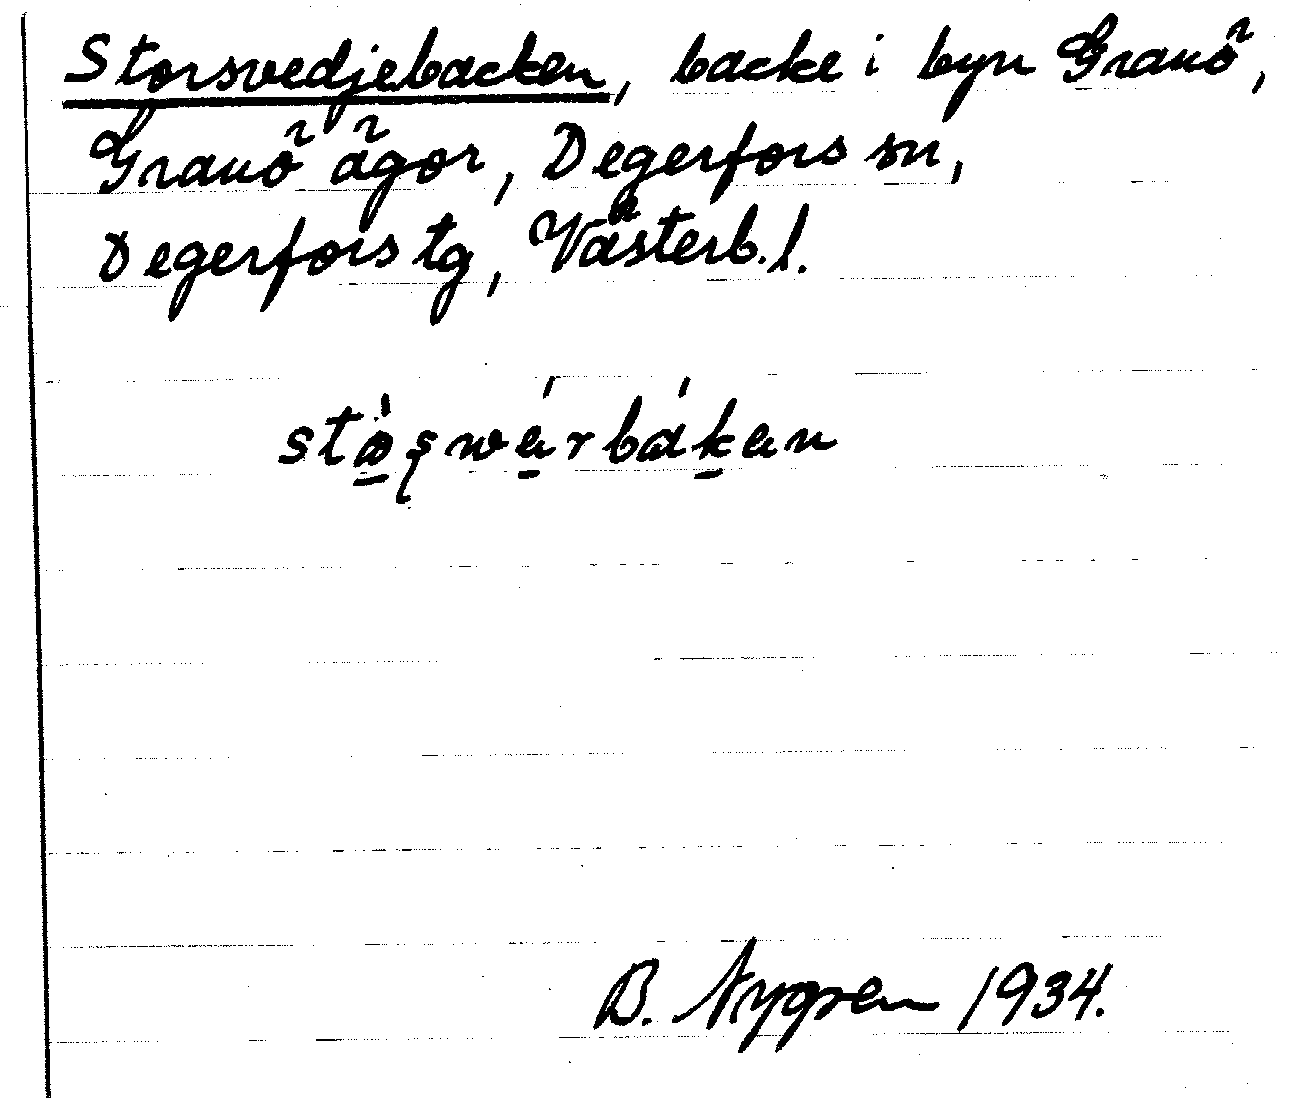 Storsvedjebacken, backe i byn Granö,
Granö ägor, Degerfors sn,
Degerfors tg, Västerb. l.
B. Nygren 1934.